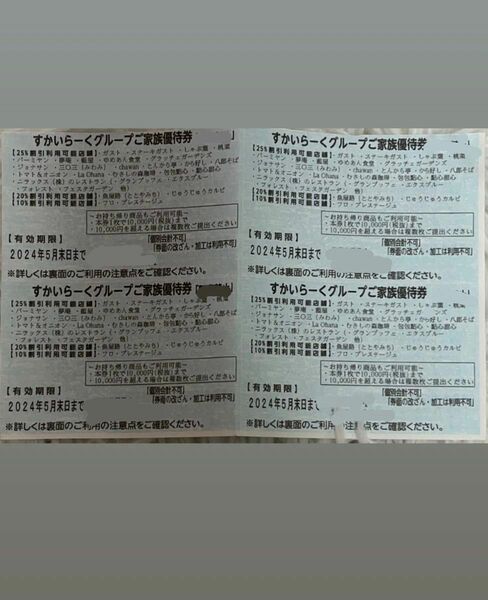 すかいらーくグループご家族優待券
【25%割引利用可能店舗】・ガスト ・ステーキガスト ・しゃぶ葉 ・桃菜
・バーミヤン ・夢庵 ・藍屋 ・ゆめあん食堂 ・グラッチェガーデンズ
・ジョナサン ・三〇三(みわみ) ・chawan ・とんから亭 ・から好し ・八郎そば
・トマト&オニオン ・La Ohana ・むさしの森珈琲 ・包包點心 ・點心甜心
・ニラックス(株)のレストラン(・グランブッフェ ・エクスブルー
・フォレスト ・フェスタガーデン 他)
【20%割引利用可能店舗】・魚屋路(ととやみち) ・じゅうじゅうカルビ
【10%割引利用可能店舗】・フロ・プレステージュ
～お持ち帰り商品もご利用可能～
・本券1枚で10,000円(税抜)まで
・10,000円を超える場合は複数枚ご提出ください
【有効期限】
2024年5月末日まで
「個別会計不可」
「券面の改ざん・加工は利用不可」
※詳しくは裏面のご利用の注意点をご確認ください。
すかいらーくグループご家族優待券
【25%割引利用可能店舗】・ガスト ・ステーキガスト ・しゃぶ葉 ・桃菜
・バーミヤン ・夢庵 ・藍屋 ・ゆめあん食堂 ・グラッチェガーデンズ
・ジョナサン ・三〇三(みわみ) ・chawan ・とんから亭 ・から好し ・八郎そば
・トマト&オニオン ・La Ohana ・むさしの森珈琲 ・包包點心 ・點心甜心
・ニラックス(株)のレストラン(・グランブッフェ ・エクスブルー
・フォレスト ・フェスタガーデン 他)
【20%割引利用可能店舗】・魚屋路(ととやみち) ・じゅうじゅうカルビ
【10%割引利用可能店舗】・フロ・プレステージュ
～お持ち帰り商品もご利用可能～
・本券1枚で10,000円(税抜)まで
・10,000円を超える場合は複数枚ご提出ください
【有効期限】
2024年5月末日まで
「個別会計不可」
「券面の改ざん・加工は利用不可」
※詳しくは裏面のご利用の注意点をご確認ください。
すかいらーくグループご家族優待券
【25%割引利用可能店舗】・ガスト ・ステーキガスト ・しゃぶ葉 ・桃菜
・バーミヤン ・夢庵 ・藍屋 ・ゆめあん食堂 ・グラッチェガーデンズ
・ジョナサン ・三〇三(みわみ) ・chawan ・とんから亭 ・から好し ・八郎そば
・トマト&オニオン ・La Ohana ・むさしの森珈琲 ・包包點心 ・點心甜心
・ニラックス(株)のレストラン(・グランブッフェ ・エクスブルー
・フォレスト ・フェスタガーデン 他)
【20%割引利用可能店舗】・魚屋路(ととやみち) ・じゅうじゅうカルビ
【10%割引利用可能店舗】・フロ・プレステージュ
～お持ち帰り商品もご利用可能～
・本券1枚で10,000円(税抜)まで
・10,000円を超える場合は複数枚ご提出ください
【有効期限】
2024年5月末日まで
「個別会計不可」
「券面の改ざん・加工は利用不可」
※詳しくは裏面のご利用の注意点をご確認ください。
すかいらーくグループご家族優待券
【25%割引利用可能店舗】・ガスト ・ステーキガスト ・しゃぶ葉 ・桃菜
・バーミヤン ・夢庵 ・藍屋 ・ゆめあん食堂 ・グラッチェガ ンズ
・ジョナサン ・三〇三(みわみ) ・chawan ・とんから亭 ・から好し ・八郎そば
・トマト&オニオン ・La Ohana ・むさしの森珈琲 ・包包點心 ・點心甜心
・ニラックス(株)のレストラン(・グランブッフェ ・エクスブルー
・フォレスト ・フェスタガーデン 他)
【20%割引利用可能店舗】・魚屋路(ととやみち) ・じゅうじゅうカルビ
【10%割引利用可能店舗】・フロ・プレステージュ
～お持ち帰り商品もご利用可能～
・本券1枚で10,000円(税抜)まで
・10,000円を超える場合は複数枚ご提出ください
【有効期限】
2024年5月末日まで
「個別会計不可」
「券面の改ざん・加工は利用不可」
※詳しくは裏面のご利用の注意点をご確認ください。